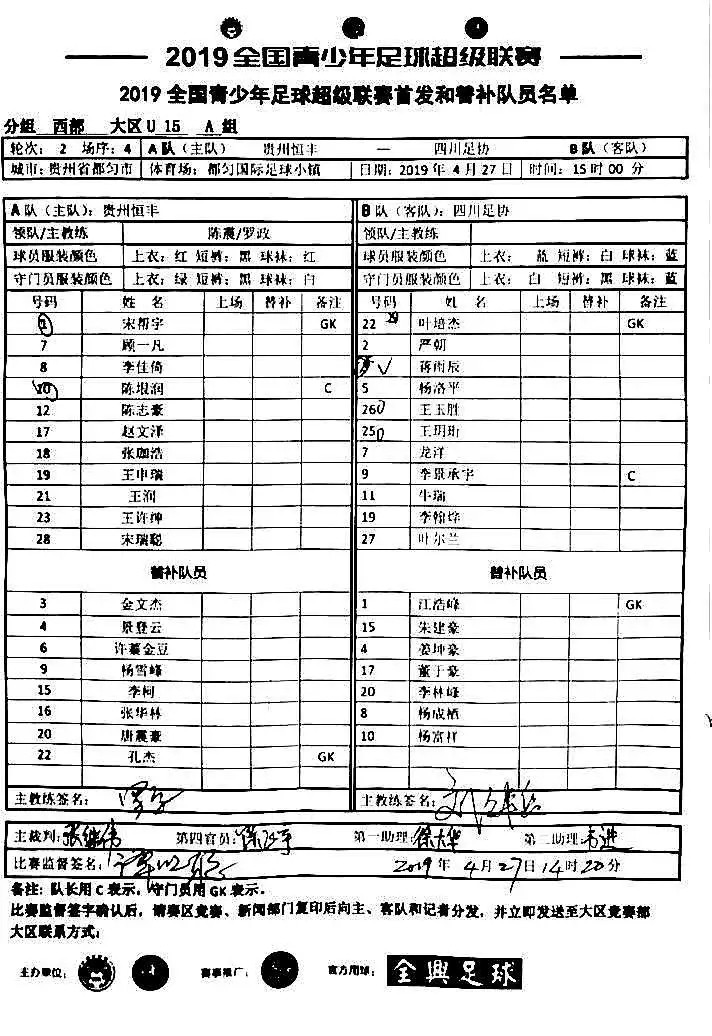 2019全国青少年足球超级联赛
2019 全国青少年足球超级联赛首发和替补队员名单
分组 西部 大区U 15 A 组
轮次: 2 场序: 4 A 队 (主队) 贵州恒丰 — 四川足协 B 队 (客队)
城市: 贵州省都匀市 体育场: 都匀国际足球小镇 日期: 2019 年 4 月 27 日 时间: 15 时 00 分
A 队 (主队): 贵州恒丰 B 队 (客队): 四川足协
领队/主教练 陈震/罗政 领队/主教练
球员服装颜色 上衣: 红 短裤: 黑 球袜: 红 球员服装颜色 上衣: 蓝 短裤: 白 球袜: 蓝
守门员服装颜色 上衣: 绿 短裤: 黑 球袜: 白 守门员服装颜色 上衣: 白 短裤: 黑 球袜: 蓝
号码 姓 名 上场 替补 备注 号码 姓 名 上场 替补 备注
1 宋帮宇 GK 22 叶培杰 GK
7 顾一凡 2 严朝
8 李佳倚 蒋雨辰
10 陈垠润 C 5 杨洛平
12 陈志豪 26 王玉胜
17 赵文泽 25 王玥珩
18 张珈浩 7 龙洋
19 王申瑞 9 李景承宇 C
21 王润 11 牛瑞
23 王许绅 19 李翰烨
28 宋瑞聪 27 叶尔兰
替补队员 替补队员
3 金文杰 1 江浩峰 GK
4 景登云 15 朱建豪
6 许蓦金豆 4 姜坤豪
9 杨雪峰 17 董于豪
15 李柯 20 李林峰
16 张华林 8 杨成栖
20 唐震豪 10 杨富祥
22 孔杰 GK
主教练签名: 主教练签名:
主裁判: 张继伟 第四官员: 第一助理: 徐大华 第二助理: 韦进
比赛监督签名: 2019 年 4 月 27 日 14 时 20 分
备注: 队长用 C 表示, 守门员用 GK 表示.
比赛监督签字确认后, 请赛区竞赛、新闻部门复印后向主、客队和记者分发, 并立即发送至大区竞赛部
大区联系方式:
主办单位: 赛事推广: 官方用球: 金興足球